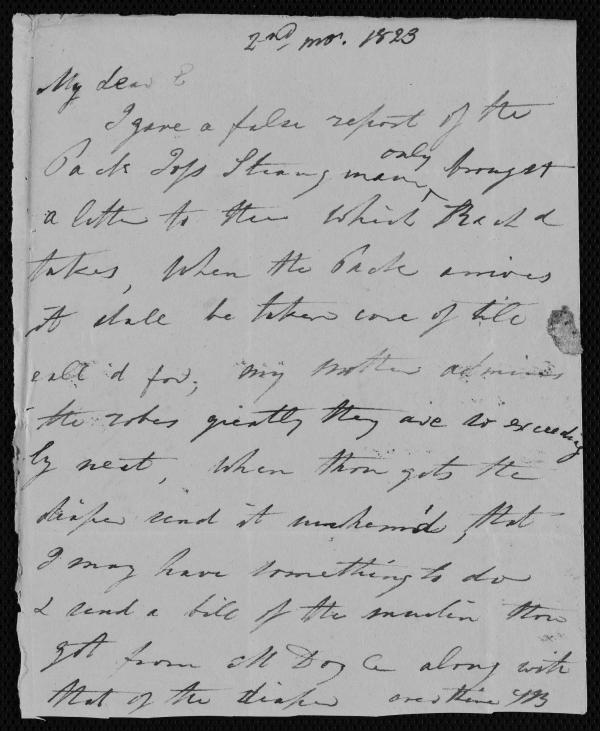 2nd mo. 1823
My dear E
I gave a false report of the
Pack Jos Strangman only brought
a letter to thee which Rach d
takes, when the Pack arrives
it shall be taken care of till
call'd for, my mother admires
the robes greatly they are so exceeding
ly neat, when thou gets the
diaper send it unhem'd, that
I may have something to do
& send a bill of the muslin thou
got from M along with
that of the diaper ever thine